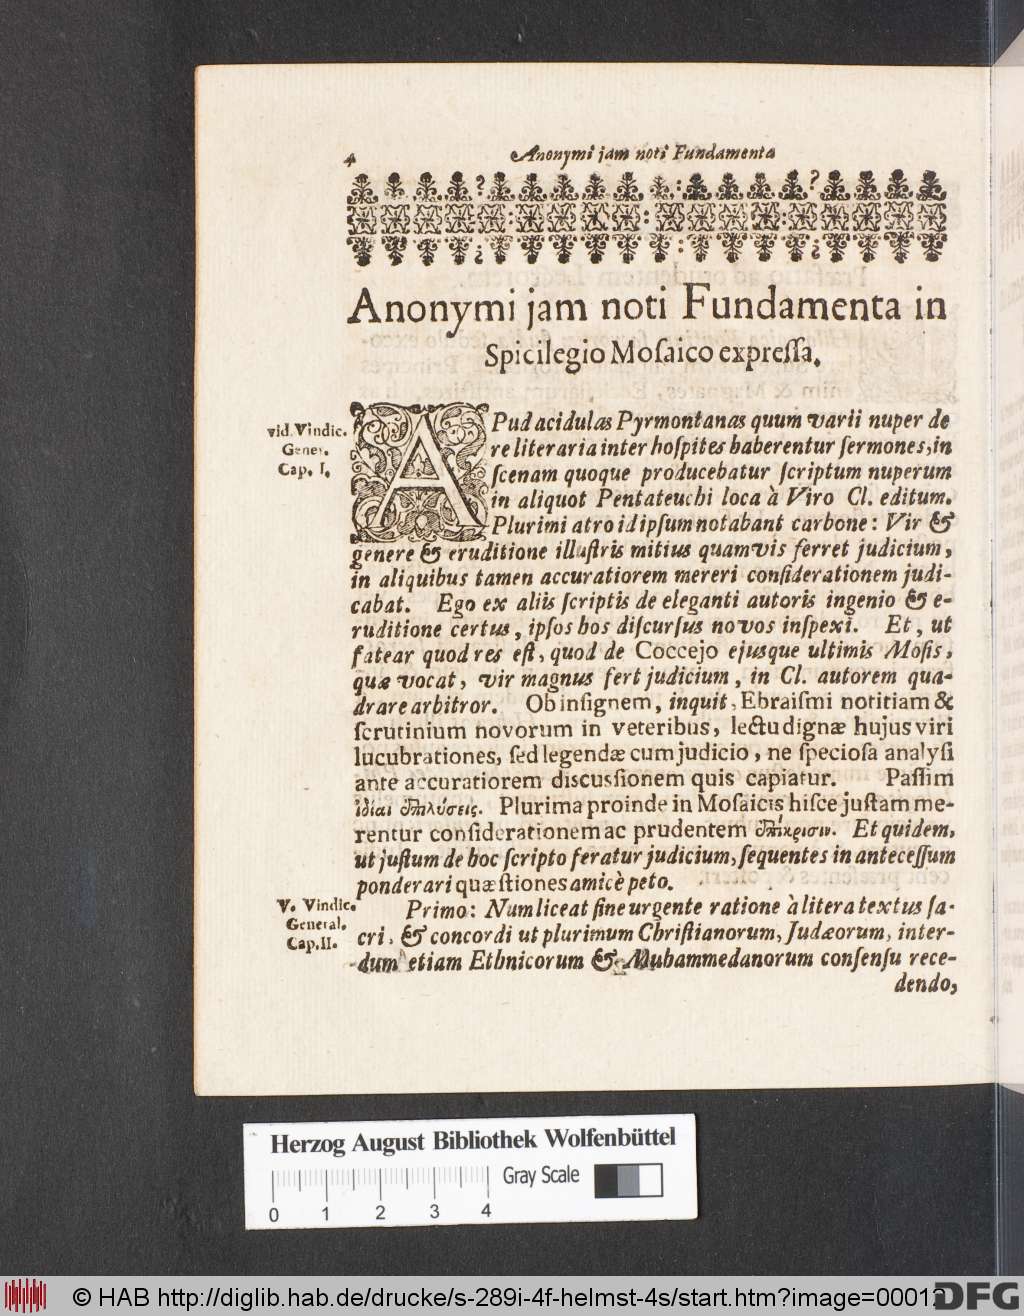 4 Anonymi jam noti Fundamenta
Anonymi jam noti Fundamenta in
Spicilegio Moſaico expreſſa.
vid. Vindic.
Gener.
Cap. I.
APud acidulas Pyrmontanas quum varii nuper de
re literaria inter hoſpites haberentur ſermones, in
ſcenam quoque producebatur ſcriptum nuperum
in aliquot Pentateuchi loca à Viro Cl. editum.
Plurimi atro id ipſum notabant carbone: Vir &
genere & eruditione illuſtris mitius quamvis ferret judicium,
in aliquibus tamen accuratiorem mereri conſiderationem judi-
cabat. Ego ex aliis ſcriptis de eleganti autoris ingenio & e-
ruditione certus, ipſos hos diſcurſus novos inſpexi. Et, ut
fatear quod res eſt, quod de Coccejo ejusque ultimis Moſis,
quæ vocat, vir magnus fert judicium, in Cl. autorem qua-
drare arbitror. Ob inſignem, inquit, Ebraiſmi notitiam &
ſcrutinium novorum in veteribus, lectu dignæ hujus viri
lucubrationes, ſed legendæ cum judicio, ne ſpecioſa analyſi
ante accuratiorem discusſionem quis capiatur. Paſſim
ἰδίαι ἐπιλύσεις. Plurima proinde in Moſaicis hiſce juſtam me-
rentur conſiderationem ac prudentem ἐπίκρισιν. Et quidem,
ut juſtum de hoc ſcripto feratur judicium, ſequentes in anteceſſum
ponderari quæſtiones amicè peto.
V. Vindic.
General.
Cap. II.
Primo: Num liceat ſine urgente ratione à litera textus ſa-
cri, & concordi ut plurimum Chriſtianorum, Judæorum, inter-
dum etiam Ethnicorum & Muhammedanorum conſenſu rece-
dendo,
Herzog August Bibliothek Wolfenbüttel
Gray Scale
0 1 2 3 4
© HAB http://diglib.hab.de/drucke/s-289i-4f-helmst-4s/start.htm?image=00012
DFG